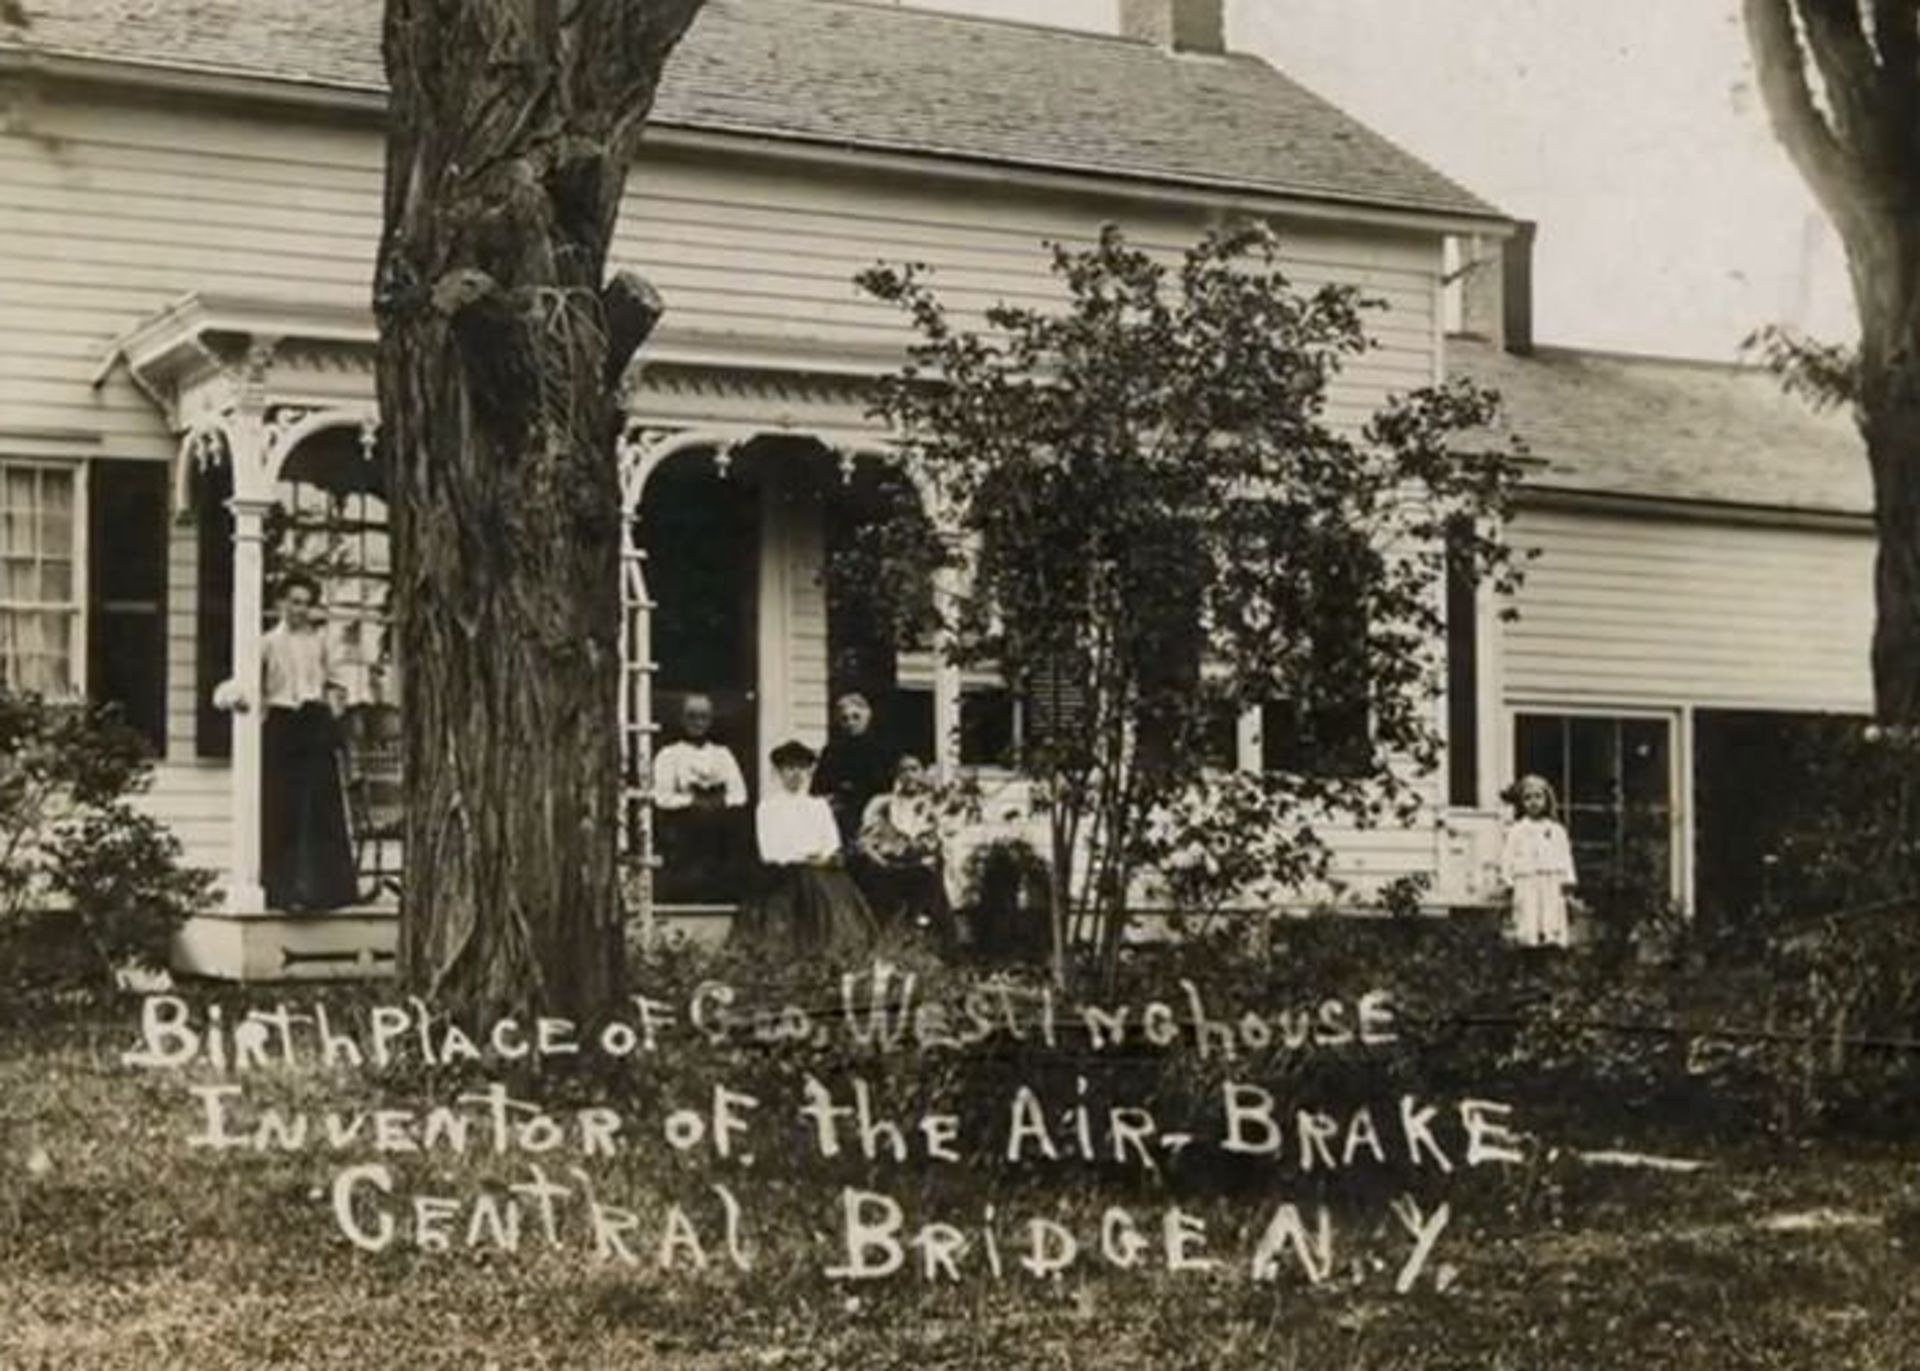 BirthPlace of Geo. Westinghouse
Inventor of the Air-Brake.
Central Bridge N.Y.